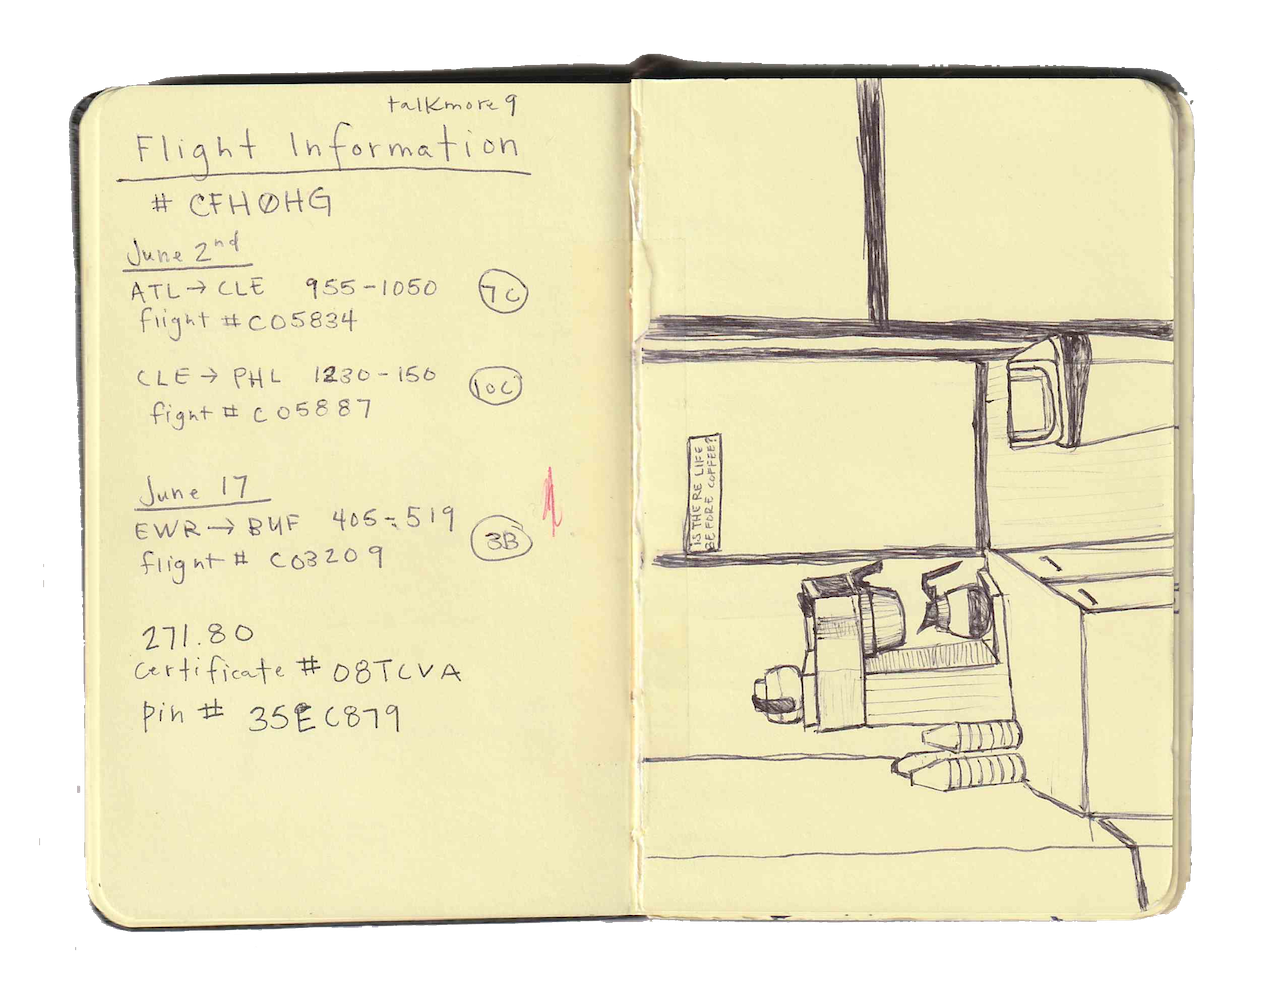 talkmore 9
Flight Information
# CFHØHG
June 2nd
ATL → CLE 955-1050 7C
flight # CO5834
CLE → PHL 1230-150 10C
fight # CO5887
June 17
EWR → BUF 405-519 3B
flight # CO3209
271.80
certificate # 08TCVA
pin # 35EC879
IS THERE LIFE
BEFORE COFFEE?